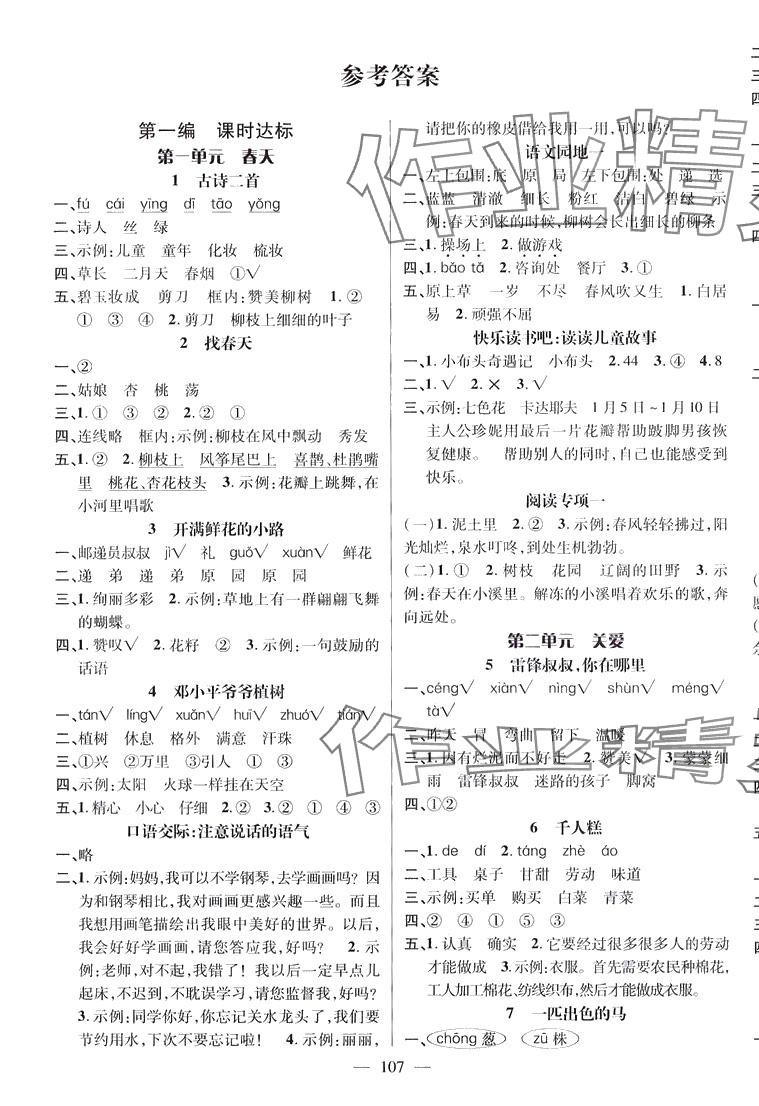 参考答案
第一编　课时达标
第一单元　春天
1　古诗二首
一、fú　cái　yīng　dī　tāo　yǒng
二、诗人　丝　绿
三、示例:儿童　童年　化妆　梳妆
四、草长　二月天　春烟　①√
五、碧玉妆成　剪刀　框内:赞美柳树　1.②
①　③　④　2.剪刀　柳枝上细细的叶子
2　找春天
一、②
二、姑娘　杏　桃　荡
三、1.①　③　②　2.②　①
四、连线略　框内:示例:柳枝在风中飘动　秀发
五、1.②　2.柳枝上　风筝尾巴上　喜鹊、杜鹃嘴
里　桃花、杏花枝头　3.示例:花瓣上跳舞,在
小河里唱歌
3　开满鲜花的小路
一、邮递员叔叔　jì√　礼　guǒ√　xuàn√　鲜花
二、递　弟　递　弟　原　园　原　园
三、1.绚丽多彩　2.示例:草地上有一群翩翩飞舞
的蝴蝶。
四、1.赞叹√　2.花籽　②　3.示例:一句鼓励的
话语
4　邓小平爷爷植树
一、tán√　líng√　xuǎn√　huī√　zhuó√　tián√
二、植树　休息　格外　满意　汗珠
三、①兴　②万里　③引人
四、示例:太阳　火球一样挂在天空
五、1.精心　小心　仔细　2.②　3.②　①　④　③
口语交际:注意说话的语气
一、略
二、1.示例:妈妈,我可以不学钢琴,去学画画吗?因
为和钢琴相比,我对画画更感兴趣一些。而且
我想用画笔描绘出我眼中美好的世界。以后,
我会好好学画画,请您答应我,好吗?　2.示
例:老师,对不起,我错了!我以后一定早点儿
起床,不迟到,不耽误学习,请您监督我,好吗?
3.示例:同学你好,你忘记关水龙头了,我们要
节约用水,下次不要忘记啦!　4.示例:丽丽,
请把你的橡皮借给我用一用,可以吗?
语文园地一
一、左上包围:底　原　局　左下包围:处　递　选
二、蓝蓝　清澈　细长　粉红　洁白　碧绿　示
例:春天到来的时候,柳树会长出细长的柳条
三、1.操场上　2.做游戏
四、1.bǎo tǎ　2.咨询处　餐厅　3.①
五、原上草　一岁　不尽　春风吹又生　1.白居
易　2.顽强不屈
快乐读书吧:读读儿童故事
一、1.小布头奇遇记　小布头　2.44　3.④　4.8
二、1.√　2.×　3.√
三、示例:七色花　卡达耶夫　1月5日~1月10日
主人公珍妮用最后一片花瓣帮助跛脚男孩恢
复健康。　帮助别人的同时,自己也能感受到
快乐。
阅读专项一
(一)1.泥土里　2.②　3.示例:春风轻轻拂过,阳
光灿烂,泉水叮咚,到处生机勃勃。
(二)1.①　2.树枝　花园　辽阔的田野　3.示
例:春天在小溪里。解冻的小溪唱着欢乐的歌,奔
向远处。
第二单元　关爱
5　雷锋叔叔,你在哪里
一、céng√　xiàn√　nìng√　shùn√　méng√
tà√
二、昨天　冒　弯曲　留下　温暖
三、1.因有烂泥而不好走　2.赞美√　3.蒙蒙细
雨　雷锋叔叔　迷路的孩子　脚窝
四、①②
6　千人糕
一、1.de　dí　2.táng　zhè　áo
二、工具　桌子　甘甜　劳动　味道
三、示例:买单　购买　白菜　青菜
四、②　④　①　⑤　③
五、1.认真　确实　2.它要经过很多很多人的劳动
才能做成　3.示例:衣服。首先需要农民种棉花,
工人加工棉花、纺线织布,然后才能做成衣服。
7　一匹出色的马
一、chōng葱　zū株
107